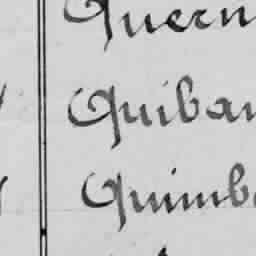 Quern
Quiban
Quimb